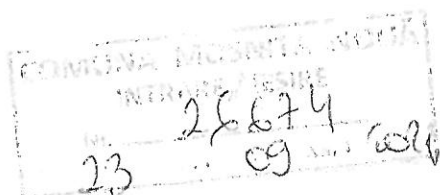 COMUNA MOȘNIȚA NOUĂ
INTRARE / IEȘIRE
Nr. 26674
23 09